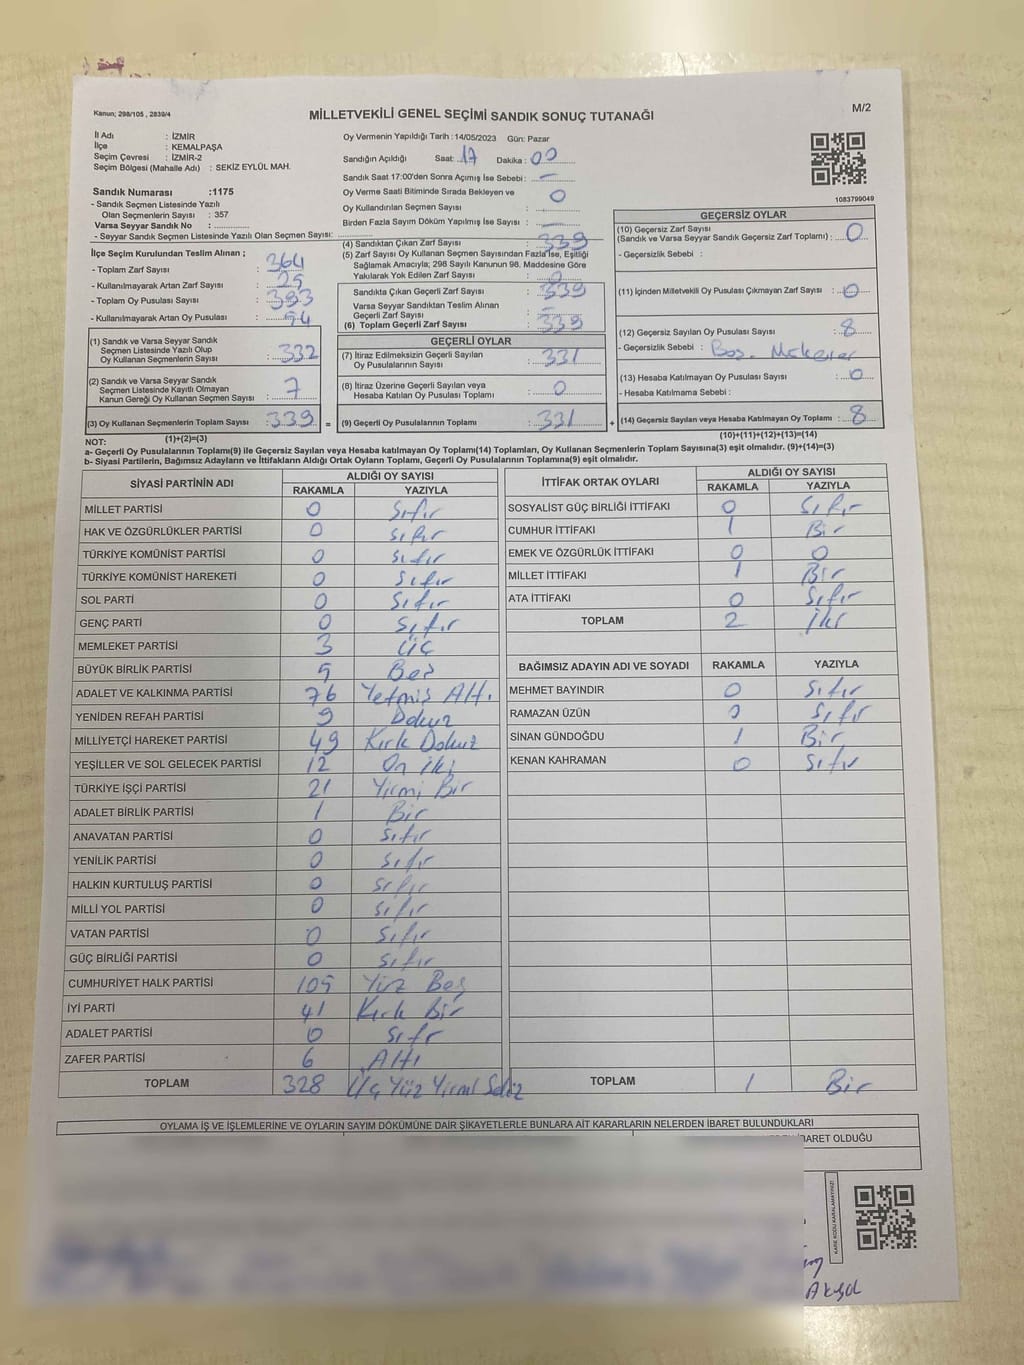 Kanun; 298/105 , 2839/4
MİLLETVEKİLİ GENEL SEÇİMİ SANDIK SONUÇ TUTANAĞI
M/2
İl Adı : İZMİR
İlçe : KEMALPAŞA
Seçim Çevresi : İZMİR-2
Seçim Bölgesi (Mahalle Adı) : SEKİZ EYLÜL MAH.
Sandık Numarası :1175
- Sandık Seçmen Listesinde Yazılı
Olan Seçmenlerin Sayısı : 357
Varsa Seyyar Sandık No :
- Seyyar Sandık Seçmen Listesinde Yazılı Olan Seçmen Sayısı:
Oy Vermenin Yapıldığı Tarih : 14/05/2023 Gün: Pazar
Sandığın Açıldığı Saat: 17 Dakika : 00
Sandık Saat 17:00'den Sonra Açımış İse Sebebi : -
Oy Verme Saati Bitiminde Sırada Bekleyen ve
Oy Kullandırılan Seçmen Sayısı : 0
Birden Fazla Sayım Döküm Yapılmış İse Sayısı : -
1083799049
İlçe Seçim Kurulundan Teslim Alınan ;
- Toplam Zarf Sayısı : 364
- Kullanılmayarak Artan Zarf Sayısı : 25
- Toplam Oy Pusulası Sayısı : 393
- Kullanılmayarak Artan Oy Pusulası : 54
(1) Sandık ve Varsa Seyyar Sandık
Seçmen Listesinde Yazılı Olup
Oy Kullanan Seçmenlerin Sayısı : 332
(2) Sandık ve Varsa Seyyar Sandık
Seçmen Listesinde Kayıtlı Olmayan
Kanun Gereği Oy Kullanan Seçmen Sayısı : 7
(3) Oy Kullanan Seçmenlerin Toplam Sayısı : 339 =
(1)+(2)=(3)
(4) Sandıktan Çıkan Zarf Sayısı : 339
(5) Zarf Sayısı Oy Kullanan Seçmen Sayısından Fazla İse, Eşitliği
Sağlamak Amacıyla; 298 Sayılı Kanunun 98. Maddesine Göre
Yakılarak Yok Edilen Zarf Sayısı : 0
Sandıkta Çıkan Geçerli Zarf Sayısı : 339
Varsa Seyyar Sandıktan Teslim Alınan
Geçerli Zarf Sayısı : -
(6) Toplam Geçerli Zarf Sayısı : 339
GEÇERLİ OYLAR
(7) İtiraz Edilmeksizin Geçerli Sayılan
Oy Pusulalarının Sayısı : 331
(8) İtiraz Üzerine Geçerli Sayılan veya
Hesaba Katılan Oy Pusulası Toplamı : 0
(9) Geçerli Oy Pusulalarının Toplamı : 331 +
GEÇERSİZ OYLAR
(10) Geçersiz Zarf Sayısı
(Sandık ve Varsa Seyyar Sandık Geçersiz Zarf Toplamı) : 0
- Geçersizlik Sebebi :
(11) İçinden Milletvekili Oy Pusulası Çıkmayan Zarf Sayısı : 0
(12) Geçersiz Sayılan Oy Pusulası Sayısı : 8
- Geçersizlik Sebebi : Boş.
(13) Hesaba Katılmayan Oy Pusulası Sayısı : 0
- Hesaba Katılmama Sebebi :
(14) Geçersiz Sayılan veya Hesaba Katılmayan Oy Toplamı : 8
(10)+(11)+(12)+(13)=(14)
NOT:
a- Geçerli Oy Pusulalarının Toplamı(9) ile Geçersiz Sayılan veya Hesaba katılmayan Oy Toplamı(14) Toplamları, Oy Kullanan Seçmenlerin Toplam Sayısına(3) eşit olmalıdır. (9)+(14)=(3)
b- Siyasi Partilerin, Bağımsız Adayların ve İttifakların Aldığı Ortak Oyların Toplamı, Geçerli Oy Pusulalarının Toplamına(9) eşit olmalıdır.
SİYASİ PARTİNİN ADI ALDIĞI OY SAYISI
RAKAMLA YAZIYLA
MİLLET PARTİSİ 0 Sıfır
HAK VE ÖZGÜRLÜKLER PARTİSİ 0 Sıfır
TÜRKİYE KOMÜNİST PARTİSİ 0 Sıfır
TÜRKİYE KOMÜNİST HAREKETİ 0 Sıfır
SOL PARTİ 0 Sıfır
GENÇ PARTİ 0 Sıfır
MEMLEKET PARTİSİ 3 Üç
BÜYÜK BİRLİK PARTİSİ 5 Beş
ADALET VE KALKINMA PARTİSİ 76 Yetmiş Altı
YENİDEN REFAH PARTİSİ 9 Dokuz
MİLLİYETÇİ HAREKET PARTİSİ 49 Kırk Dokuz
YEŞİLLER VE SOL GELECEK PARTİSİ 12 On iki
TÜRKİYE İŞÇİ PARTİSİ 21 Yirmi Bir
ADALET BİRLİK PARTİSİ 1 Bir
ANAVATAN PARTİSİ 0 Sıfır
YENİLİK PARTİSİ 0 Sıfır
HALKIN KURTULUŞ PARTİSİ 0 Sıfır
MİLLİ YOL PARTİSİ 0 Sıfır
VATAN PARTİSİ 0 Sıfır
GÜÇ BİRLİĞİ PARTİSİ 0 Sıfır
CUMHURİYET HALK PARTİSİ 105 Yüz Beş
İYİ PARTİ 41 Kırk Bir
ADALET PARTİSİ 0 Sıfır
ZAFER PARTİSİ 6 Altı
TOPLAM 328 Üç Yüz Yirmi Sekiz
İTTİFAK ORTAK OYLARI ALDIĞI OY SAYISI
RAKAMLA YAZIYLA
SOSYALİST GÜÇ BİRLİĞİ İTTİFAKI 0 Sıfır
CUMHUR İTTİFAKI 1 Bir
EMEK VE ÖZGÜRLÜK İTTİFAKI 0 0
MİLLET İTTİFAKI 1 Bir
ATA İTTİFAKI 0 Sıfır
TOPLAM 2 İki
BAĞIMSIZ ADAYIN ADI VE SOYADI RAKAMLA YAZIYLA
MEHMET BAYINDIR 0 Sıfır
RAMAZAN ÜZÜN 0 Sıfır
SİNAN GÜNDOĞDU 1 Bir
KENAN KAHRAMAN 0 Sıfır
TOPLAM 1 Bir
OYLAMA İŞ VE İŞLEMLERİNE VE OYLARIN SAYIM DÖKÜMÜNE DAİR ŞİKAYETLERLE BUNLARA AİT KARARLARIN NELERDEN İBARET BULUNDUKLARI
İBARET OLDUĞU
KARE KODU KARALAMAYINIZ!